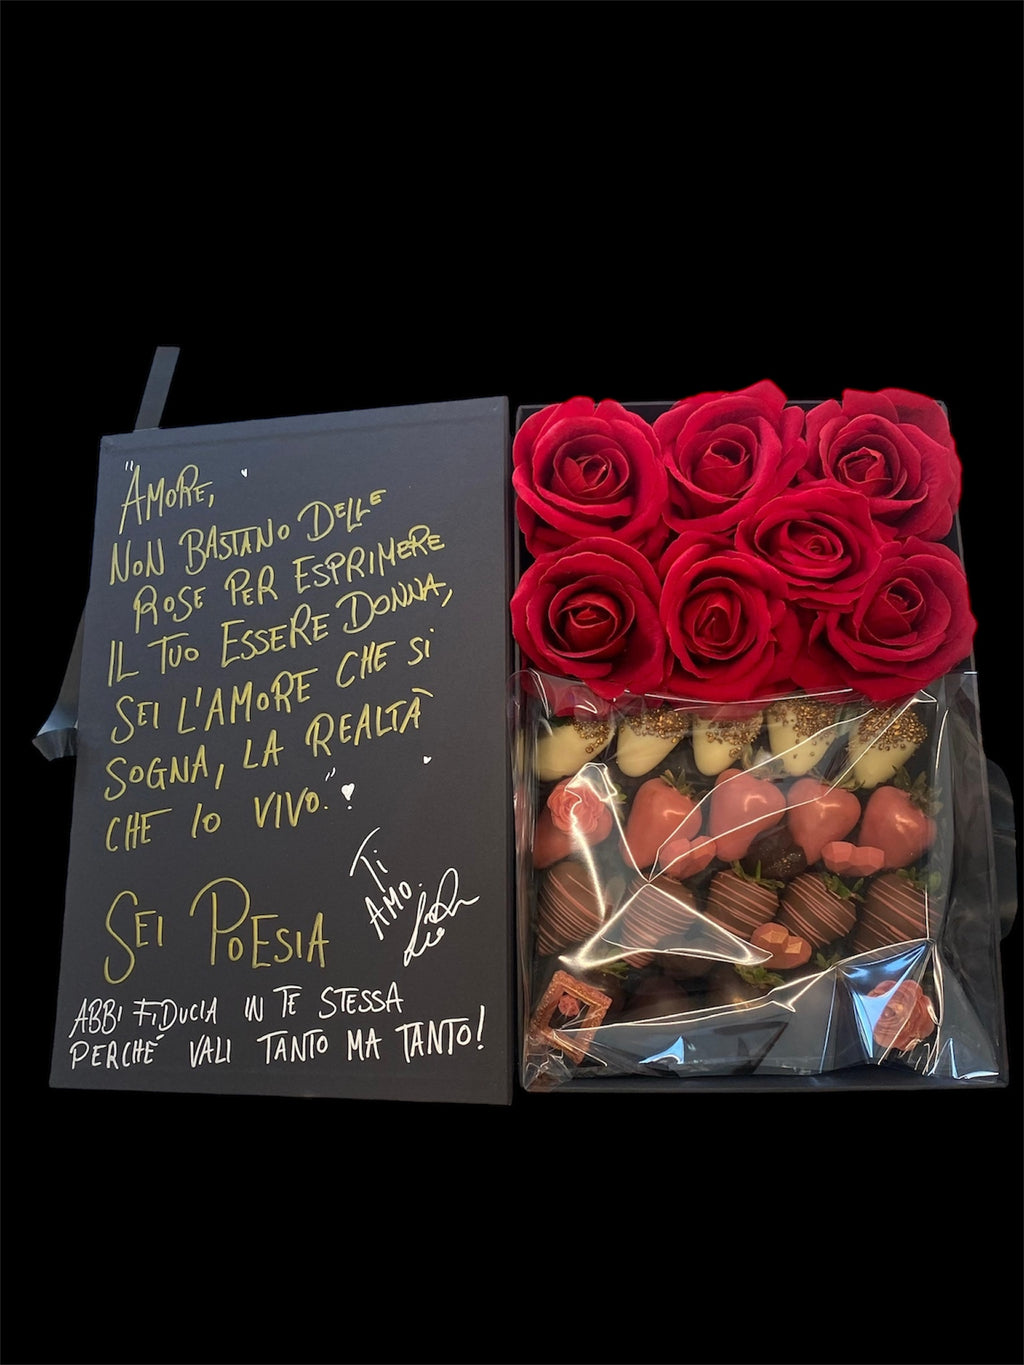 "AMORE,
NON BASTANO DELLE
ROSE PER ESPRIMERE
IL TUO ESSERE DONNA,
SEI L'AMORE CHE SI
SOGNA, LA REALTÀ
CHE IO VIVO."
TI
AMO.
SEI POESIA
ABBI FIDUCIA IN TE STESSA
PERCHÉ VALI TANTO MA TANTO!